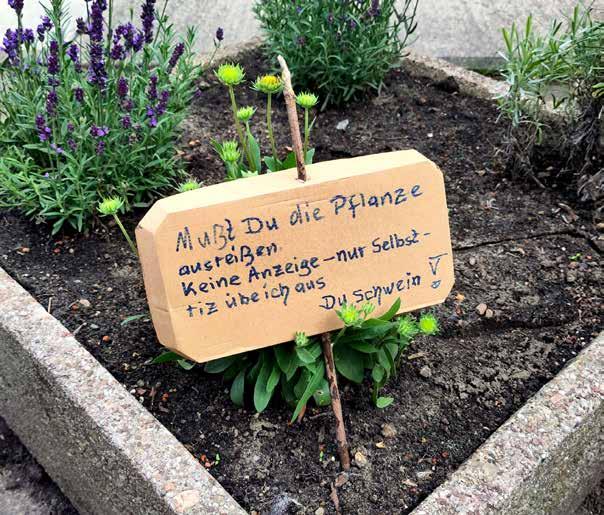 Mußt Du die Pflanze
ausreißen.
Keine Anzeige – nur Selbst-
tiz übe ich aus
Du Schwein !